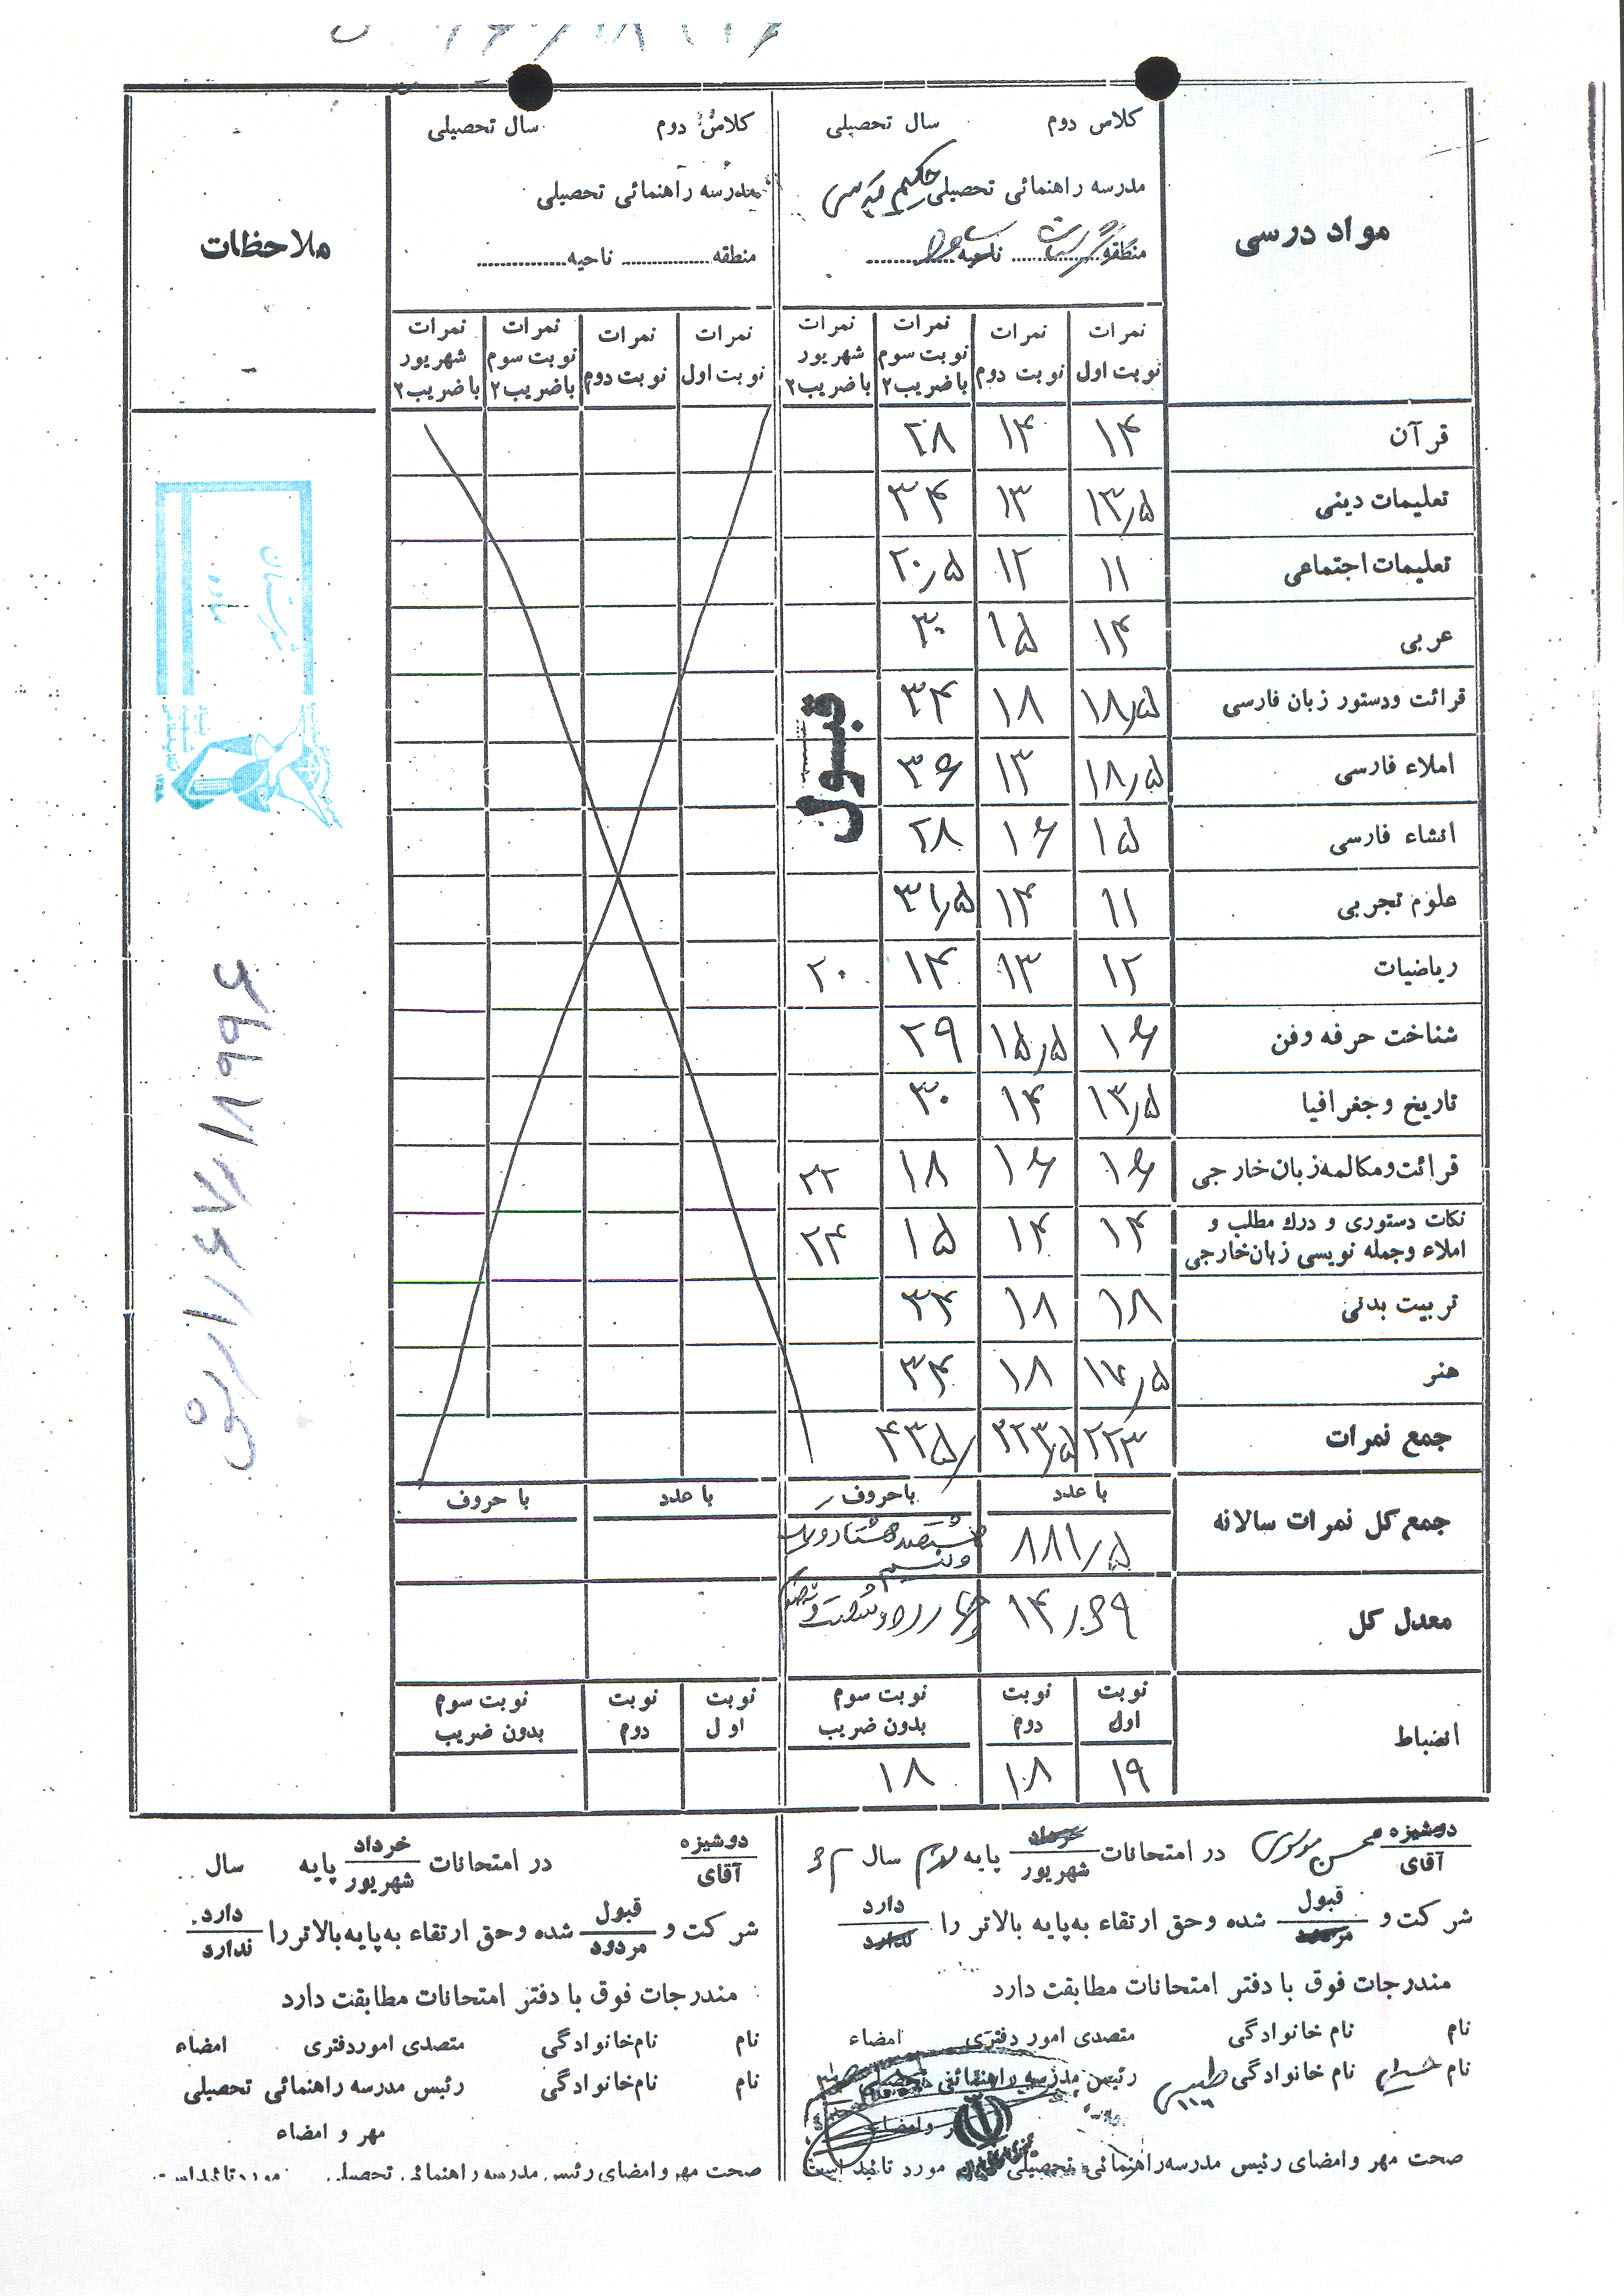 کلاس دوم سال تحصیلی
مدرسه راهنمائی تحصیلی حکیم
منطقه ناحیه
کلاس دوم سال تحصیلی
مدرسه راهنمائی تحصیلی
منطقه............... ناحیه...............
مواد درسی
ملاحظات
نمرات نوبت اول نمرات نوبت دوم نمرات نوبت سوم با ضریب ۲ نمرات شهریور با ضریب ۲ نمرات نوبت اول نمرات نوبت دوم نمرات نوبت سوم با ضریب ۲ نمرات شهریور با ضریب ۲
قرآن ۱۴ ۱۴ ۲۸
تعلیمات دینی ۱۳٫۵ ۱۳ ۳۴
تعلیمات اجتماعی ۱۱ ۱۲ ۲۰٫۵
عربی ۱۴ ۱۵ ۳۰
قرائت ودستور زبان فارسی ۱۸٫۵ ۱۸ ۳۴
املاء فارسی ۱۸٫۵ ۱۳ ۳۶
انشاء فارسی ۱۵ ۱۶ ۲۸
علوم تجربی ۱۱ ۱۴ ۳۱٫۵
ریاضیات ۱۲ ۱۳ ۱۴ ۲۰
شناخت حرفه وفن ۱۶ ۱۵٫۵ ۲۹
تاریخ وجغرافیا ۱۳٫۵ ۱۴ ۳۰
قرائت ومکالمه زبان خارجی ۱۶ ۱۶ ۱۸ ۲۲
نکات دستوری و درك مطلب و
املاء وجمله نویسی زبان خارجی ۱۴ ۱۴ ۱۵ ۲۴
تربیت بدنی ۱۸ ۱۸ ۳۴
هنر ۱۷٫۵ ۱۸ ۳۴
قبول
جمع نمرات ۲۲۳ ۲۲۳٫۵ ۴۳۵
با عدد باحروف با عدد با حروف
جمع کل نمرات سالانه ۸۸۱٫۵
معدل کل ۱۴٫۶۹
نوبت اول نوبت دوم نوبت سوم بدون ضریب نوبت اول نوبت دوم نوبت سوم بدون ضریب
انضباط ۱۹ ۱۸ ۱۸
۱۸۹۹۶
دوشیزه آقای محسن موسوی در امتحانات خرداد شهریور پایه دوم سال
شرکت و قبول مردود شده وحق ارتقاء به پایه بالاتر را دارد ندارد
مندرجات فوق با دفتر امتحانات مطابقت دارد
نام نام خانوادگی متصدی امور دفتری امضاء
نام نام خانوادگی رئیس مدرسه راهنمائی
و امضاء
صحت مهر وامضای رئیس مدرسه راهنمائی تحصیلی مورد تائید است
دوشیزه آقای در امتحانات خرداد شهریور پایه سال
شرکت و قبول مردود شده وحق ارتقاء به پایه بالاتر را دارد ندارد
مندرجات فوق با دفتر امتحانات مطابقت دارد
نام نام خانوادگی متصدی اموردفتری امضاء
نام نام خانوادگی رئیس مدرسه راهنمائی تحصیلی
مهر و امضاء
صحت مهر وامضای رئیس مدرسه راهنمائی تحصیلی مورد تائید است